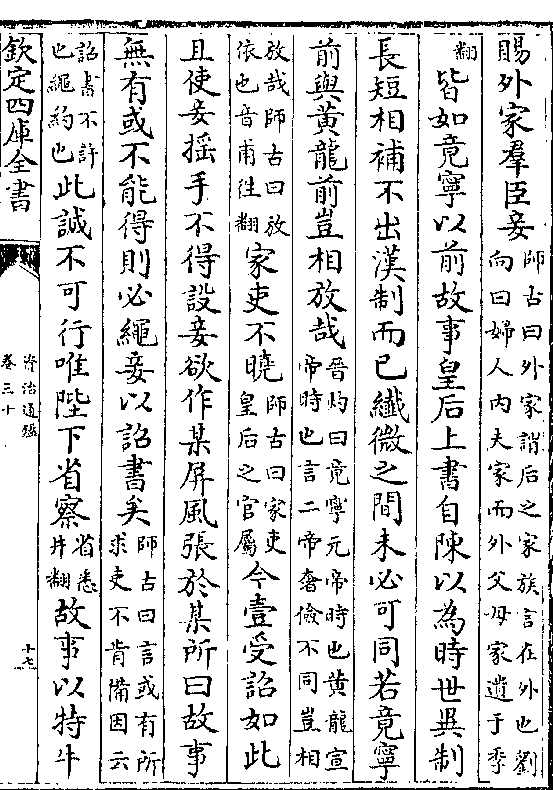 賜外家羣臣妾師古曰外家謂后之家族言在外也劉向曰婦人内夫家而外父母家遺于季
翻皆如竟寧以前故事皇后上書自陳以為時世異制
長短相補不出漢制而已纖微之間未必可同若竟寧
前與黄龍前豈相放哉晉灼曰竟寧元帝時也黄龍宣帝時也言二帝奢儉不同豈相
放哉師古曰放依也音甫往翻家吏不曉師古曰家吏皇后之官屬今壹受詔如此
且使妾摇手不得設妾欲作某屏風張於某所曰故事
無有或不能得則必繩妾以詔書矣師古曰言或有所求吏不肯備因云
詔書不許也繩約也此誠不可行唯陛下省察省悉井翻故事以特牛
欽定四庫全書
資治通鑑
卷三十
十七